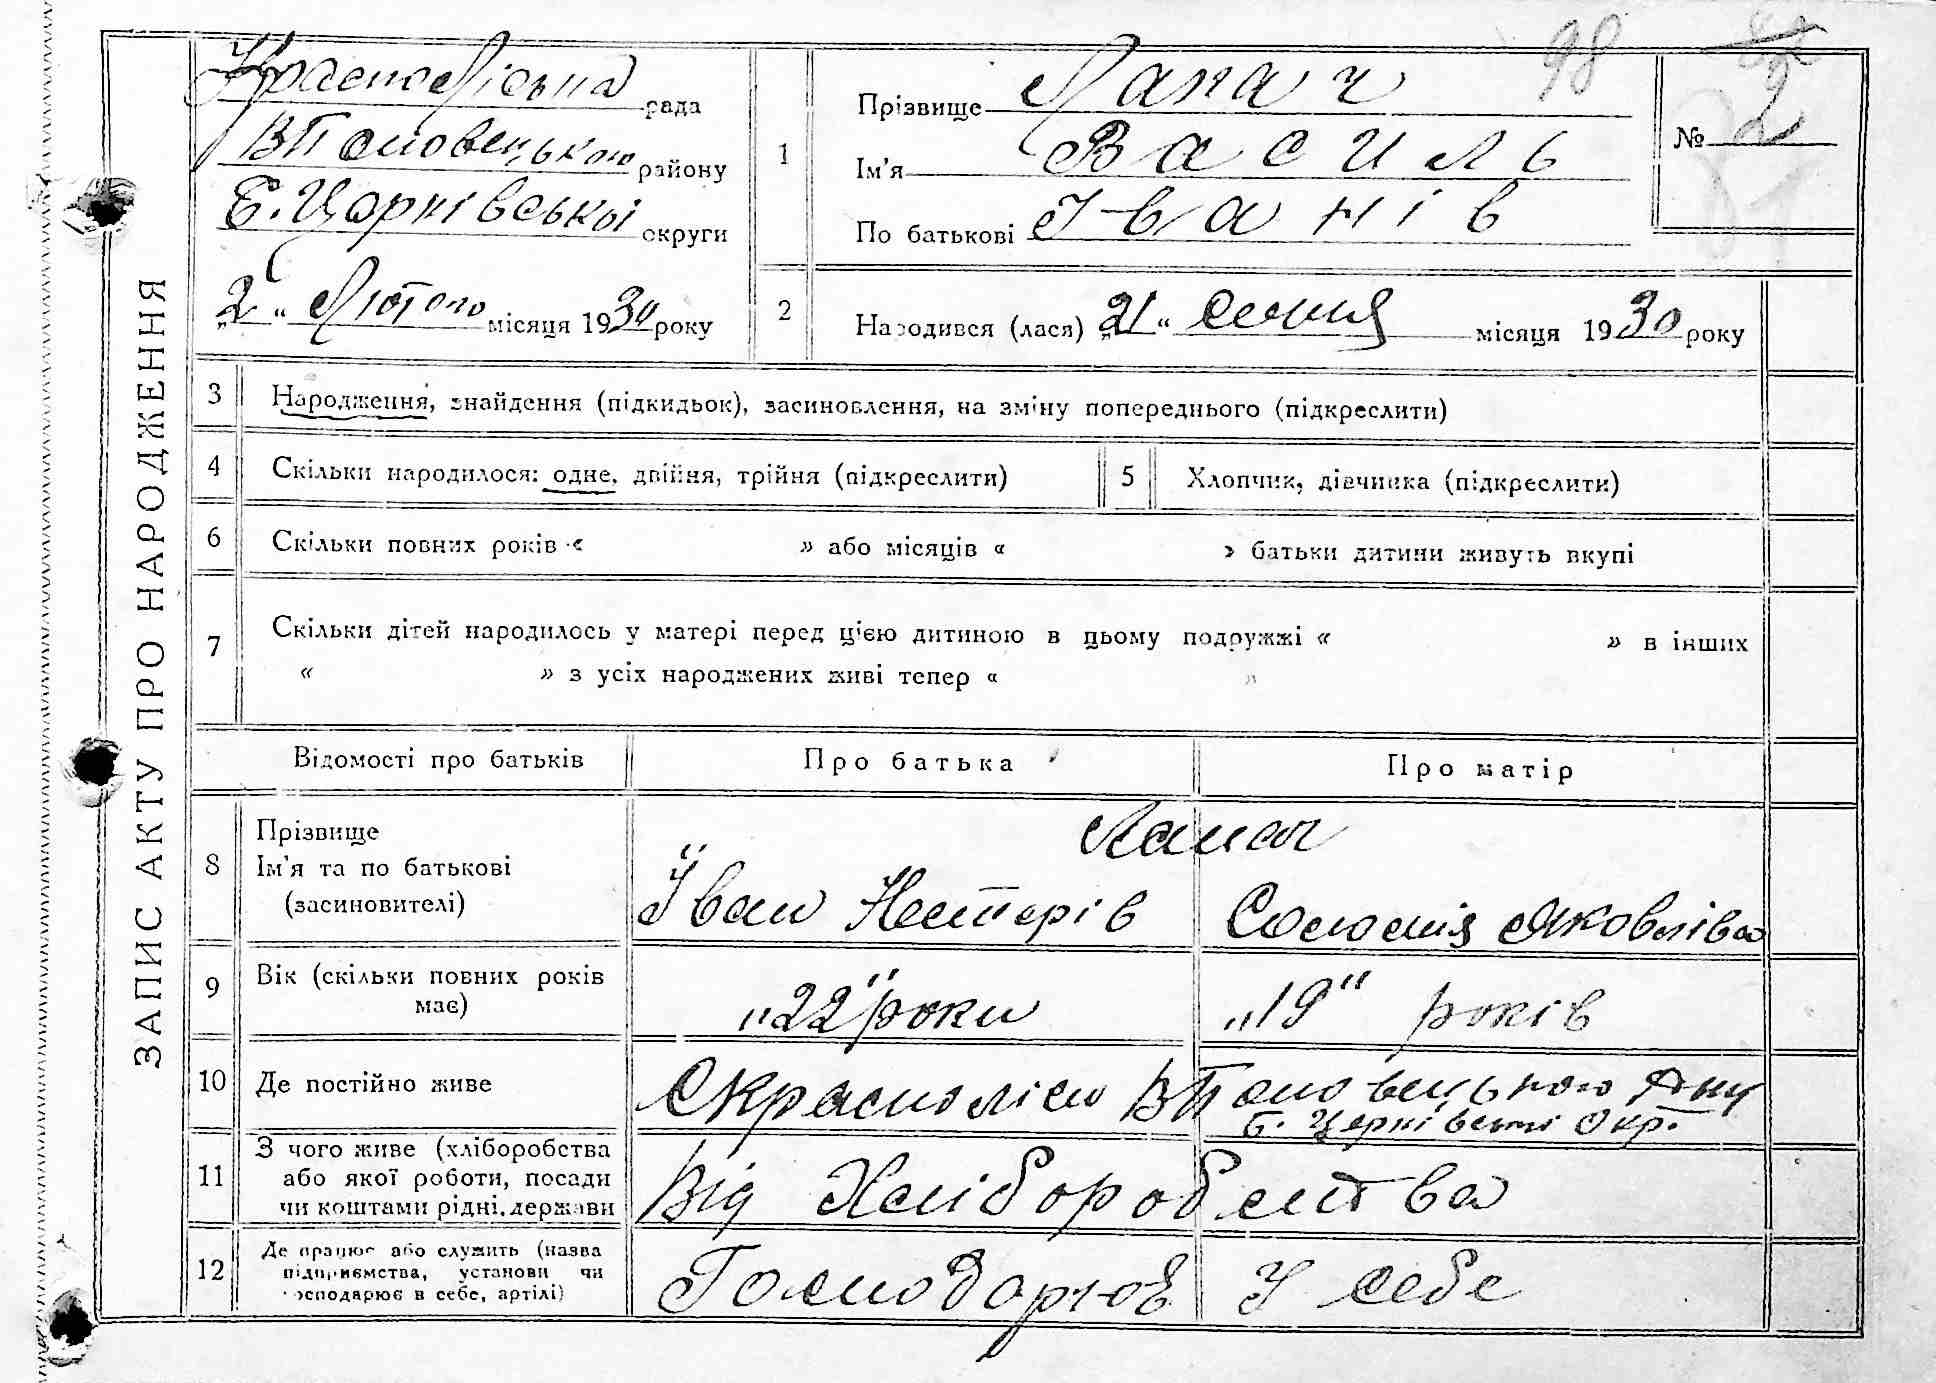 98
ЗАПИС АКТУ ПРО НАРОДЖЕННЯ
Красноліська рада
ВПоловецького району
Б. Церківської округи
„2“ Лютого місяця 1930 року
1
Прізвище Лапач
Ім'я Василь
По батькові Іванів
№ 2
2 Народився (лася) „21“ січня місяця 1930 року
3 Народження, знайдення (підкидьок), засиновлення, на зміну попереднього (підкреслити)
4 Скільки народилося: одне, двійня, трійня (підкреслити) 5 Хлопчик, дівчинка (підкреслити)
6 Скільки повних років « » або місяців « » батьки дитини живуть вкупі
7 Скільки дітей народилось у матері перед цією дитиною в цьому подружжі « » в інших
« » з усіх народжених живі тепер « »
Відомості про батьків Про батька Про матір
8 Прізвище
Ім'я та по батькові
(засиновителі)
Лапач
Іван Нестерів Соломія Яковлівна
9 Вік (скільки повних років
має)
„22“ роки „19“ років
10 Де постійно живе
С Краснолісы ВПоловецького
Б. Церківської Окр.
11 З чого живе (хліборобства
або якої роботи, посади
чи коштами рідні, держави
Від Хліборобства
12 Де працює або служить (назва
підприємства, установи чи
господарює в себе, артілі)
Господарює У себе